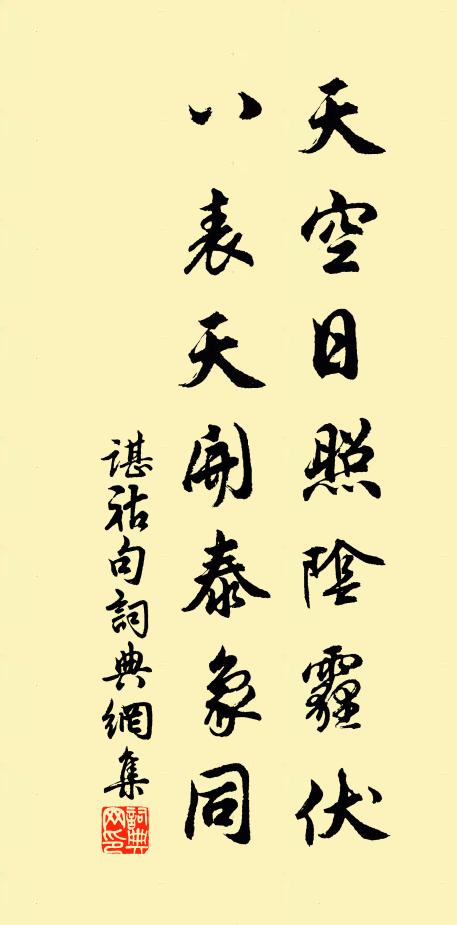 天空日照陰霾伏
八表天開泰象同
諶祜句詞典網集
詞典
网印